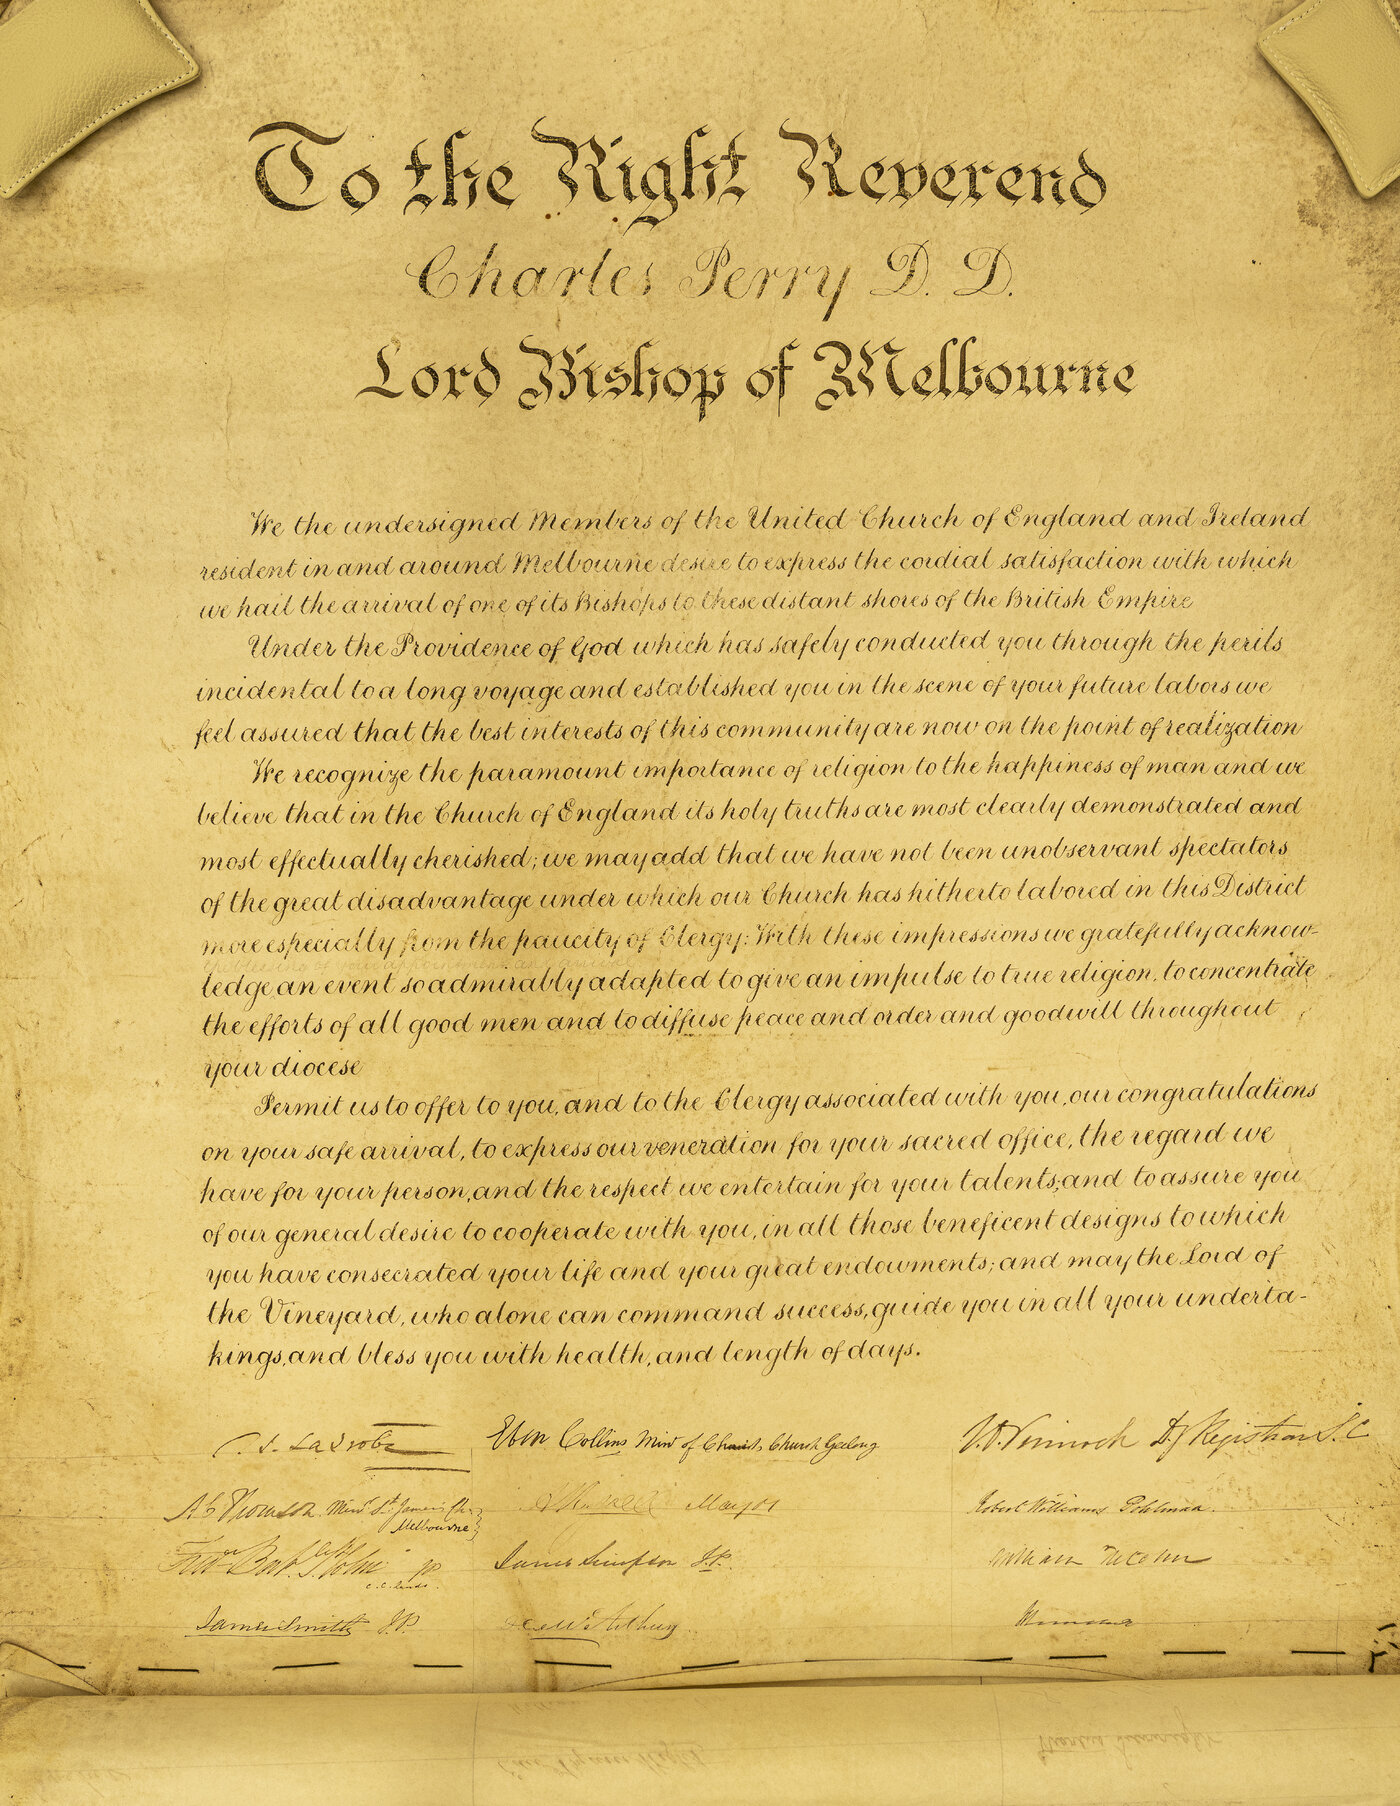 To the Right Reverend
Charles Perry D. D.
Lord Bishop of Melbourne
We the undersigned Members of the United Church of England and Ireland
resident in and around Melbourne desire to express the cordial satisfaction with which
we hail the arrival of one of its Bishops to these distant shores of the British Empire
Under the Providence of God which has safely conducted you through the perils
incidental to a long voyage and established you in the scene of your future labors we
feel assured that the best interests of this community are now on the point of realization
We recognize the paramount importance of religion to the happiness of man and we
believe that in the Church of England its holy truths are most clearly demonstrated and
most effectually cherished; we may add that we have not been unobservant spectators
of the great disadvantage under which our Church has hitherto labored in this District
more especially from the paucity of Clergy: With these impressions we gratefully acknow-
ledge an event so admirably adapted to give an impulse to true religion, to concentrate
the efforts of all good men and to diffuse peace and order and goodwill throughout
your diocese
Permit us to offer to you, and to the Clergy associated with you, our congratulations
on your safe arrival, to express our veneration for your sacred office, the regard we
have for your person, and the respect we entertain for your talents; and to assure you
of our general desire to cooperate with you, in all those beneficent designs to which
you have consecrated your life and your great endowments; and may the Lord of
the Vineyard, who alone can command success, guide you in all your underta-
kings, and bless you with health, and length of days.
C. J. La Trobe Eben Collins Minr of Christs Church Geelong Registrar S.C
A C Thomson Minr St James Ch. Melbourne Mayor Robert Williams Pohlman
James Simpson J.P. William
James Smith J.P.